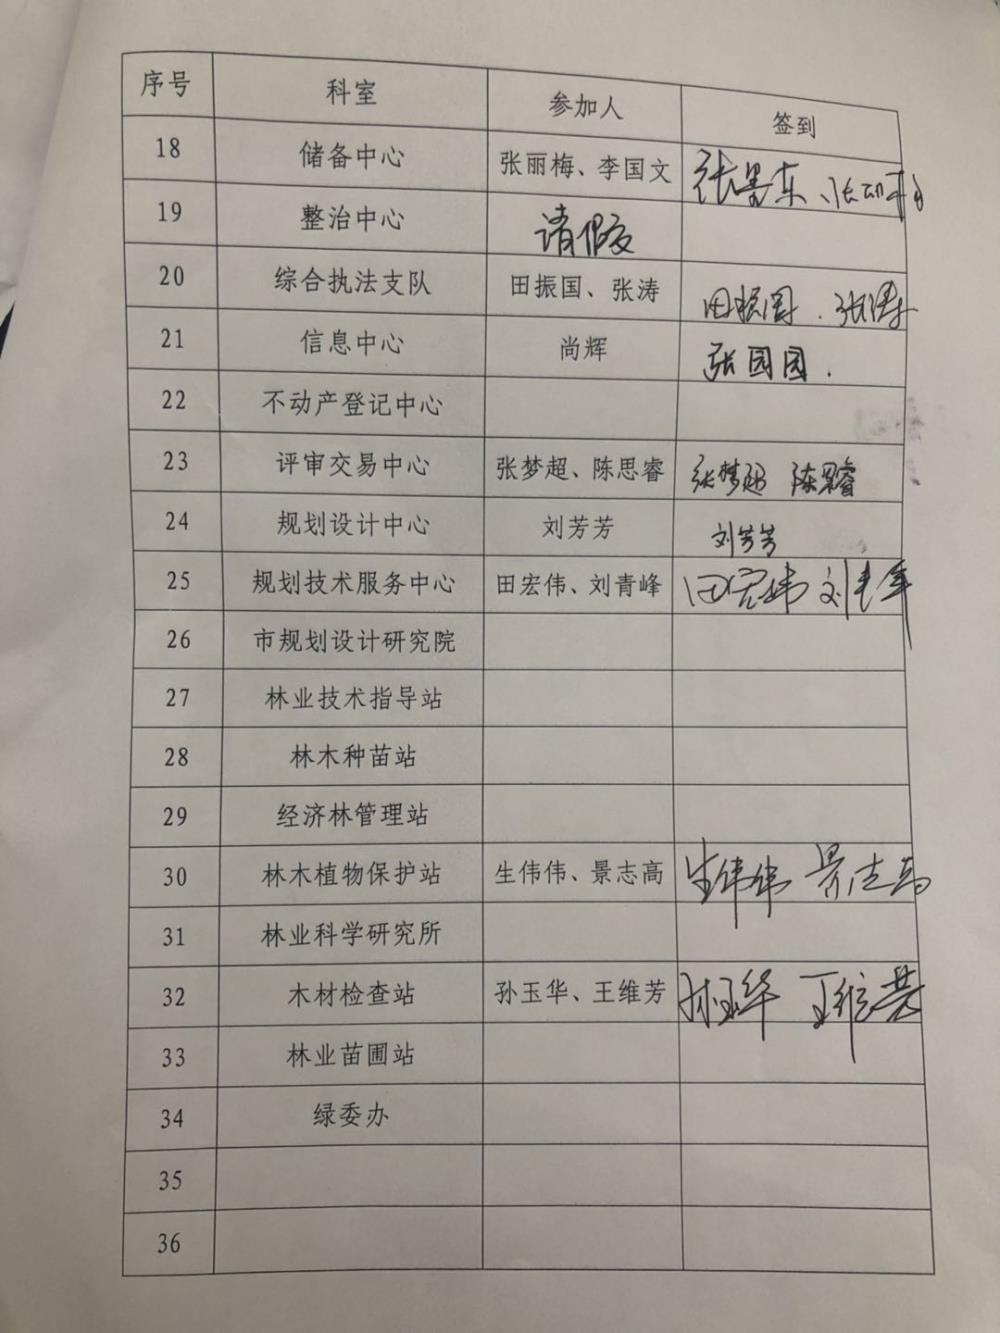 序号 科室 参加人 签到
18 储备中心 张丽梅、李国文 张景东、
19 整治中心 请假
20 综合执法支队 田振国、张涛 田振国、张涛
21 信息中心 尚辉 张园园.
22 不动产登记中心
23 评审交易中心 张梦超、陈思睿 张梦超 陈思睿
24 规划设计中心 刘芳芳 刘芳芳
25 规划技术服务中心 田宏伟、刘青峰 田宏伟 刘青峰
26 市规划设计研究院
27 林业技术指导站
28 林木种苗站
29 经济林管理站
30 林木植物保护站 生伟伟、景志高 生伟伟 景志高
31 林业科学研究所
32 木材检查站 孙玉华、王维芳 孙玉华 王维芳
33 林业苗圃站
34 绿委办
35
36